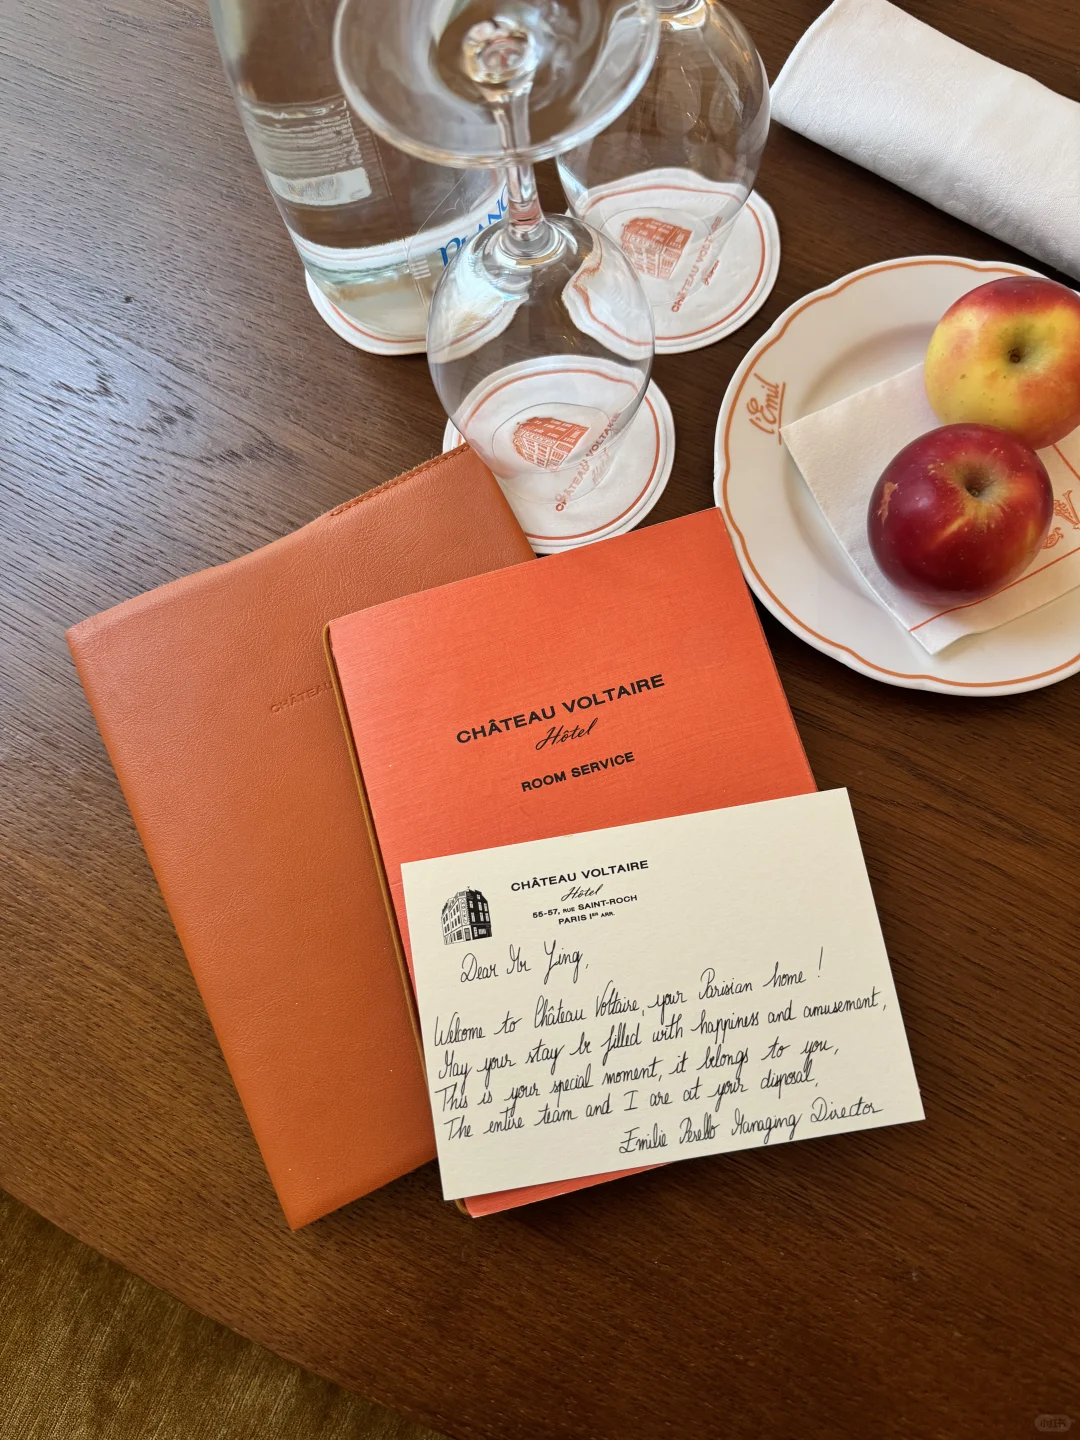 CHÂTEAU VOLTAIRE
Hôtel
CHÂTEAU VOLTAIRE
Hôtel
l'Émil
CHÂTEAU
CHÂTEAU VOLTAIRE
Hôtel
ROOM SERVICE
CHÂTEAU VOLTAIRE
Hôtel
55-57, RUE SAINT-ROCH
PARIS Iᴱᴿ ARR.
Dear Mr Ying,
Welcome to Château Voltaire, your Parisian home !
May your stay be filled with happiness and amusement,
This is your special moment, it belongs to you,
The entire team and I are at your disposal,
Emilie Perello Managing Director
小红书